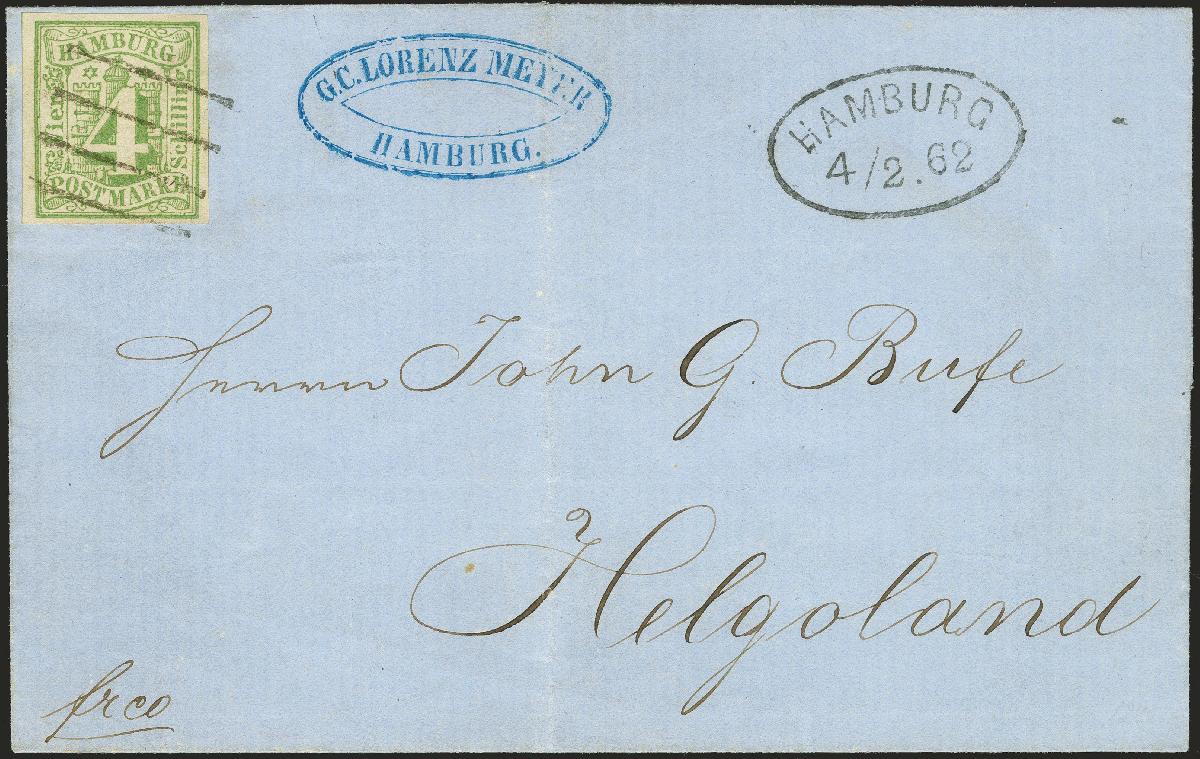 HAMBURG
Vier
4
Schilling
POSTMARKE
G.C. LORENZ MEYER
HAMBURG.
HAMBURG
4/2.62
Herrn John G. Bufe
Helgoland
frco